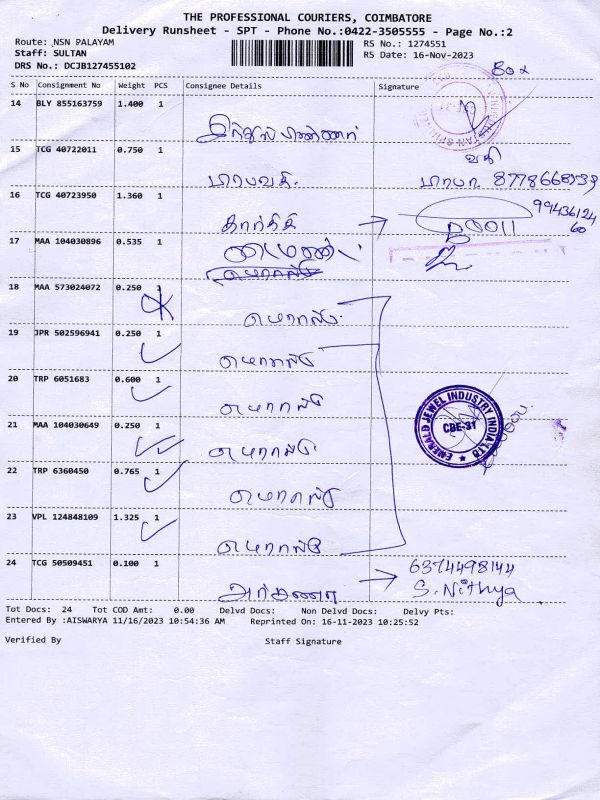 THE PROFESSIONAL COURIERS, COIMBATORE
Delivery Runsheet - SPT - Phone No.:0422-3505555 - Page No.:2
Route: NSN PALAYAM
RS No.: 1274551
Staff: SULTAN
RS Date: 16-Nov-2023
DRS No.: DCJB127455102
S No Consignment No Weight PCS Consignee Details Signature
14 BLY 855163759 1.400 1
15 TCG 40722011 0.750 1
16 TCG 40723950 1.360 1
கார்த்திக்
99436124
60
17 MAA 104030896 0.535 1
18 MAA 573024072 0.250 1
எமரால்டு
19 JPR 502596941 0.250 1
எமரால்டு
20 TRP 6051683 0.600 1
எமரால்டு
21 MAA 104030649 0.250 1
எமரால்டு
EMERALD JEWEL INDUSTRY INDIA LTD
CBE-31
22 TRP 6360450 0.765 1
எமரால்டு
23 VPL 124848109 1.325 1
எமரால்டு
24 TCG 50509451 0.100 1
6374498144
S. Nithya
Tot Docs: 24 Tot COD Amt: 0.00 Delvd Docs: Non Delvd Docs: Delvy Pts:
Entered By :AISWARYA 11/16/2023 10:54:36 AM Reprinted On: 16-11-2023 10:25:52
Verified By Staff Signature